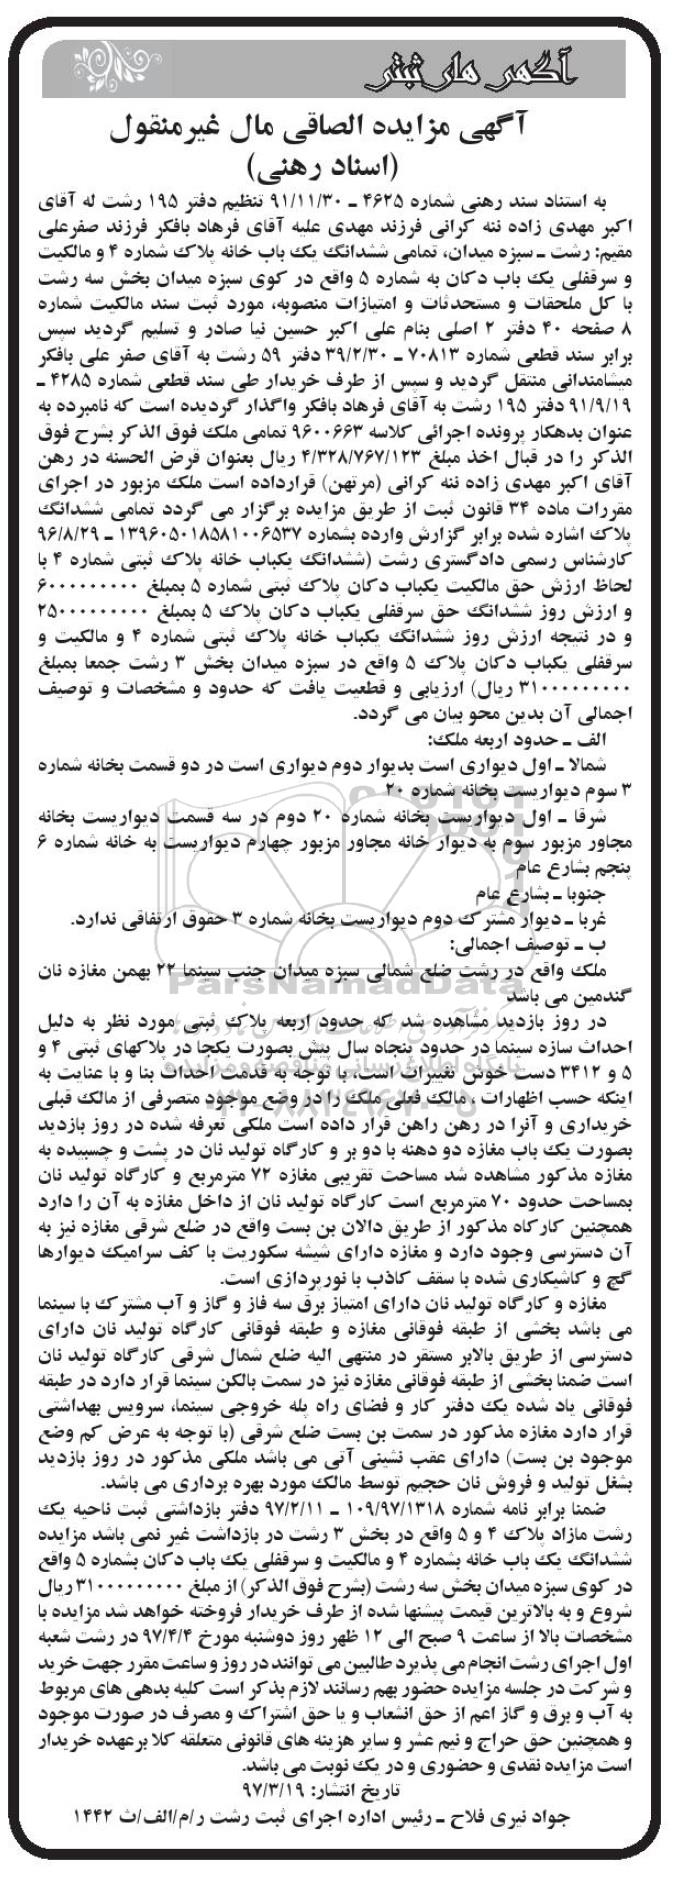 آگهی های ثبتی
آگهی مزایده الصاقی مال غیرمنقول
(اسناد رهنی)
به استناد سند رهنی شماره ۴۶۲۵ ـ ۹۱/۱۱/۳۰ تنظیم دفتر ۱۹۵ رشت له آقای
اکبر مهدی زاده ننه کرانی فرزند مهدی علیه آقای فرهاد بافکر فرزند صفرعلی
مقیم: رشت ـ سبزه میدان، تمامی ششدانگ یک باب خانه پلاک شماره ۴ و مالکیت
و سرقفلی یک باب دکان به شماره ۵ واقع در کوی سبزه میدان بخش سه رشت
با کل ملحقات و مستحدثات و امتیازات منصوبه، مورد ثبت سند مالکیت شماره
۸ صفحه ۴۰ دفتر ۲ اصلی بنام علی اکبر حسین نیا صادر و تسلیم گردید سپس
برابر سند قطعی شماره ۷۰۸۱۳ ـ ۳۹/۲/۳۰ دفتر ۵۹ رشت به آقای صفر علی بافکر
میشامندانی منتقل گردید و سپس از طرف خریدار طی سند قطعی شماره ۴۲۸۵ ـ
۹۱/۹/۱۹ دفتر ۱۹۵ رشت به آقای فرهاد بافکر واگذار گردیده است که نامبرده به
عنوان بدهکار پرونده اجرائی کلاسه ۹۶۰۰۶۶۳ تمامی ملک فوق الذکر بشرح فوق
الذکر را در قبال اخذ مبلغ ۴/۳۲۸/۷۶۷/۱۲۳ ریال بعنوان قرض الحسنه در رهن
آقای اکبر مهدی زاده ننه کرانی (مرتهن) قرارداده است ملک مزبور در اجرای
مقررات ماده ۳۴ قانون ثبت از طریق مزایده برگزار می گردد تمامی ششدانگ
پلاک اشاره شده برابر گزارش وارده بشماره ۱۳۹۶۰۵۰۱۸۵۸۱۰۰۶۵۳۷ ـ ۹۶/۸/۲۹
کارشناس رسمی دادگستری رشت (ششدانگ یکباب خانه پلاک ثبتی شماره ۴ با
لحاظ ارزش حق مالکیت یکباب دکان پلاک ثبتی شماره ۵ بمبلغ ۶۰۰۰۰۰۰۰۰۰
و ارزش روز ششدانگ حق سرقفلی یکباب دکان پلاک ۵ بمبلغ ۲۵۰۰۰۰۰۰۰۰۰
و در نتیجه ارزش روز ششدانگ یکباب خانه پلاک ثبتی شماره ۴ و مالکیت و
سرقفلی یکباب دکان پلاک ۵ واقع در سبزه میدان بخش ۳ رشت جمعا بمبلغ
۳۱۰۰۰۰۰۰۰۰۰ ریال) ارزیابی و قطعیت یافت که حدود و مشخصات و توصیف
اجمالی آن بدین محو بیان می گردد.
الف ـ حدود اربعه ملک:
شمالا ـ اول دیواری است بدیوار دوم دیواری است در دو قسمت بخانه شماره
۳ سوم دیواریست بخانه شماره ۲۰
شرقا ـ اول دیواریست بخانه شماره ۲۰ دوم در سه قسمت دیواریست بخانه
مجاور مزبور سوم به دیوار خانه مجاور مزبور چهارم دیواریست به خانه شماره ۶
پنجم بشارع عام
جنوبا ـ بشارع عام
غربا ـ دیوار مشترک دوم دیواریست بخانه شماره ۳ حقوق ارتفاقی ندارد.
ب ـ توصیف اجمالی:
ملک واقع در رشت ضلع شمالی سبزه میدان جنب سینما ۲۲ بهمن مغازه نان
گندمین می باشد
ParsNamadData
در روز بازدید مشاهده شد که حدود اربعه پلاک ثبتی مورد نظر به دلیل
احداث سازه سینما در حدود پنجاه سال پیش بصورت یکجا در پلاکهای ثبتی ۴ و
۵ و ۳۴۱۲ دست خوش تغییرات است، با توجه به قدمت احداث بنا و با عنایت به
اینکه حسب اظهارات ، مالک فعلی ملک را در وضع موجود متصرفی از مالک قبلی
خریداری و آنرا در رهن راهن قرار داده است ملکی تعرفه شده در روز بازدید
بصورت یک باب مغازه دو دهنه با دو بر و کارگاه تولید نان در پشت و چسبیده به
مغازه مذکور مشاهده شد مساحت تقریبی مغازه ۷۲ مترمربع و کارگاه تولید نان
بمساحت حدود ۷۰ مترمربع است کارگاه تولید نان از داخل مغازه به آن را دارد
همچنین کارکاه مذکور از طریق دالان بن بست واقع در ضلع شرقی مغازه نیز به
آن دسترسی وجود دارد و مغازه دارای شیشه سکوریت با کف سرامیک دیوارها
گچ و کاشیکاری شده با سقف کاذب با نورپردازی است.
مغازه و کارگاه تولید نان دارای امتیاز برق سه فاز و گاز و آب مشترک با سینما
می باشد بخشی از طبقه فوقانی مغازه و طبقه فوقانی کارگاه تولید نان دارای
دسترسی از طریق بالابر مستقر در منتهی الیه ضلع شمال شرقی کارگاه تولید نان
است ضمنا بخشی از طبقه فوقانی مغازه نیز در سمت بالکن سینما قرار دارد در طبقه
فوقانی یاد شده یک دفتر کار و فضای راه پله خروجی سینما، سرویس بهداشتی
قرار دارد مغازه مذکور در سمت بن بست ضلع شرقی (با توجه به عرض کم وضع
موجود بن بست) دارای عقب نشینی آتی می باشد ملکی مذکور در روز بازدید
بشغل تولید و فروش نان حجیم توسط مالک مورد بهره برداری می باشد.
ضمنا برابر نامه شماره ۱۰۹/۹۷/۱۳۱۸ ـ ۹۷/۲/۱۱ دفتر بازداشتی ثبت ناحیه یک
رشت مازاد پلاک ۴ و ۵ واقع در بخش ۳ رشت در بازداشت غیر نمی باشد مزایده
ششدانگ یک باب خانه بشماره ۴ و مالکیت و سرقفلی یک باب دکان بشماره ۵ واقع
در کوی سبزه میدان بخش سه رشت (بشرح فوق الذکر) از مبلغ ۳۱۰۰۰۰۰۰۰۰۰ ریال
شروع و به بالاترین قیمت پیشنها شده از طرف خریدار فروخته خواهد شد مزایده با
مشخصات بالا از ساعت ۹ صبح الی ۱۲ ظهر روز دوشنبه مورخ ۹۷/۴/۴ در رشت شعبه
اول اجرای رشت انجام می پذیرد طالبین می توانند در روز و ساعت مقرر جهت خرید
و شرکت در جلسه مزایده حضور بهم رسانند لازم بذکر است کلیه بدهی های مربوط
به آب و برق و گاز اعم از حق انشعاب و یا حق اشتراک و مصرف در صورت موجود
و همچنین حق حراج و نیم عشر و سایر هزینه های قانونی متعلقه کلا برعهده خریدار
است مزایده نقدی و حضوری و در یک نوبت می باشد.
تاریخ انتشار: ۹۷/۳/۱۹
جواد نیری فلاح ـ رئیس اداره اجرای ثبت رشت ر/م/الف/ث ۱۴۴۲